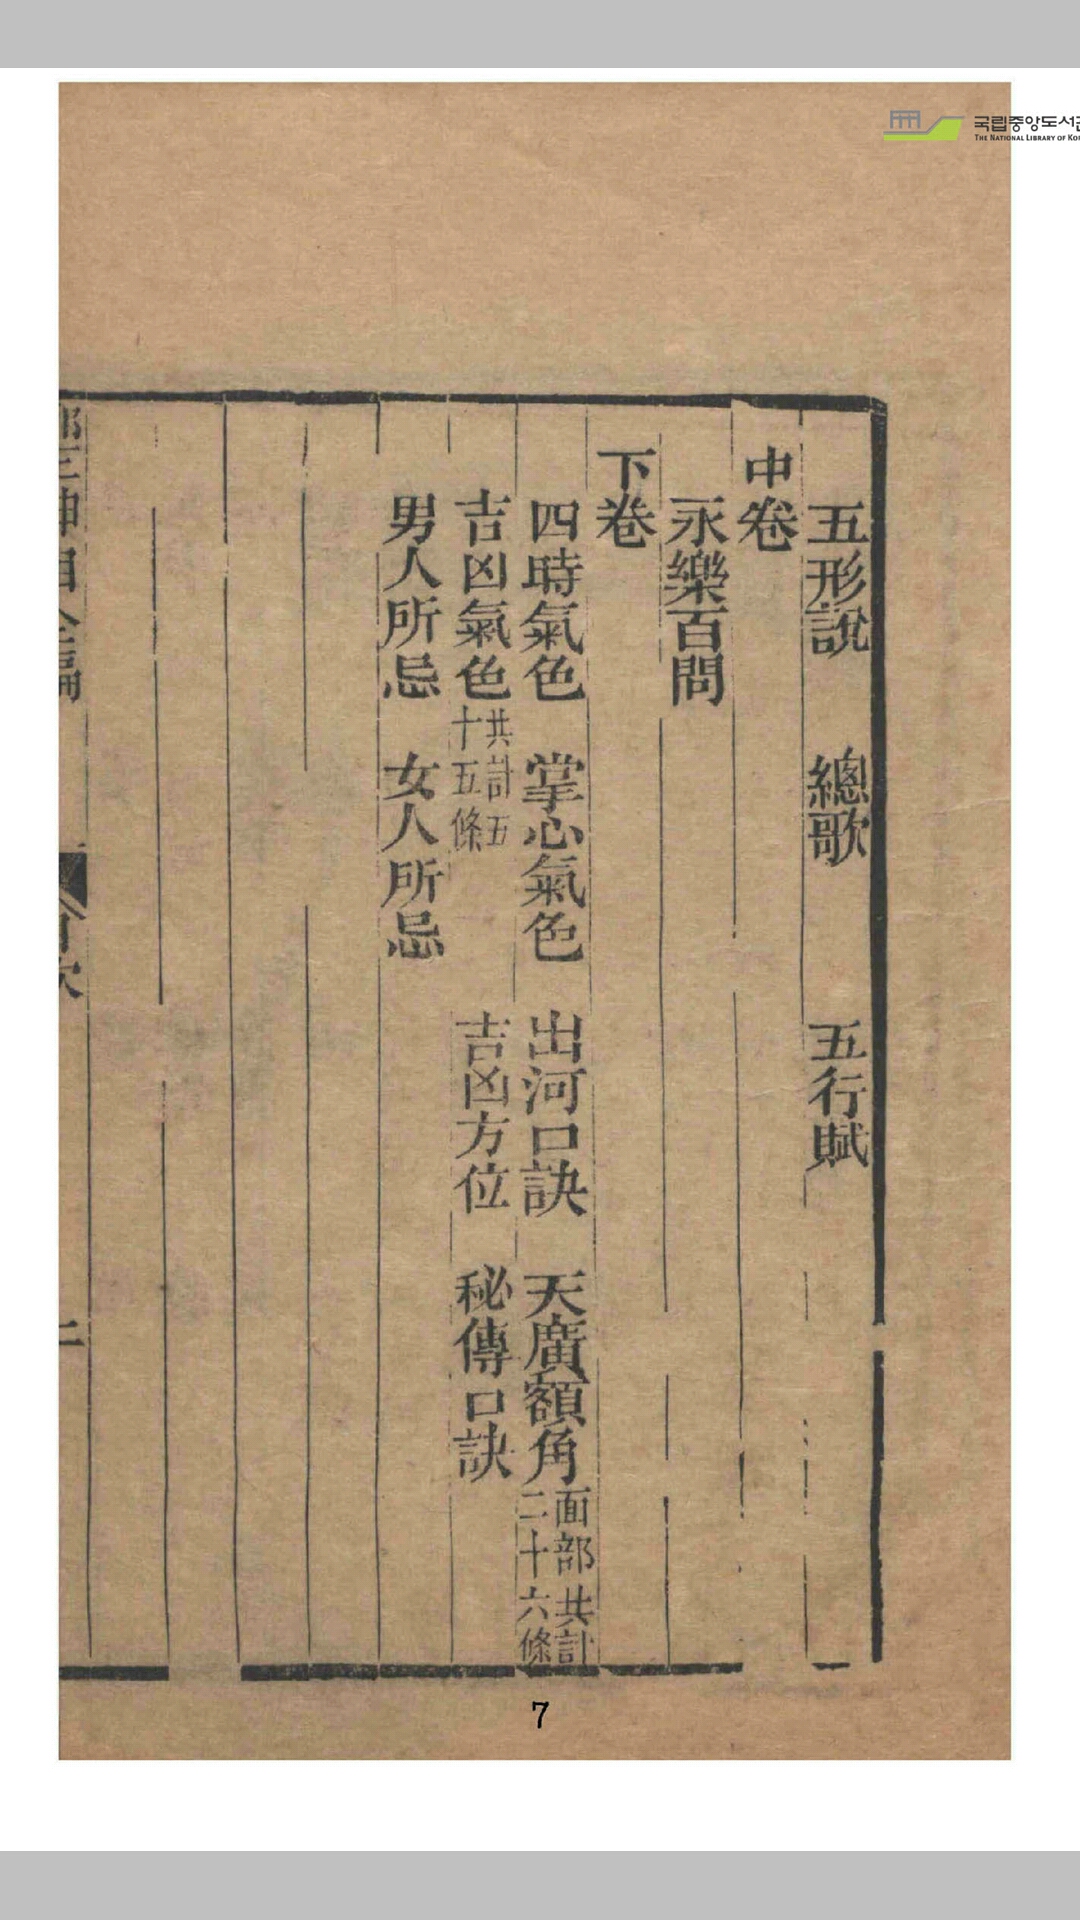 국립중앙도서관
THE NATIONAL LIBRARY OF KOR
五形說 總歌 五行賦
中卷
永樂百問
下卷
四時氣色 掌心氣色 出河口訣 天廣額角 面部共計二十六條
吉凶氣色 共計五十五條 吉凶方位 秘傳口訣
男人所忌 女人所忌
目次
二
7